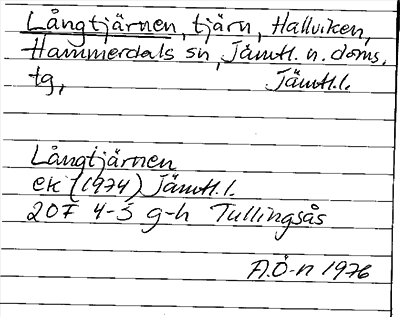 Långtjärnen, tjärn, Hallviken,
Hammerdals sn, Jämtl. n. doms.
tg, Jämtl.l.
Långtjärnen
ek (1974) Jämtl.l.
20F 4-5 g-h Tullingsås
A.Ö-n 1976